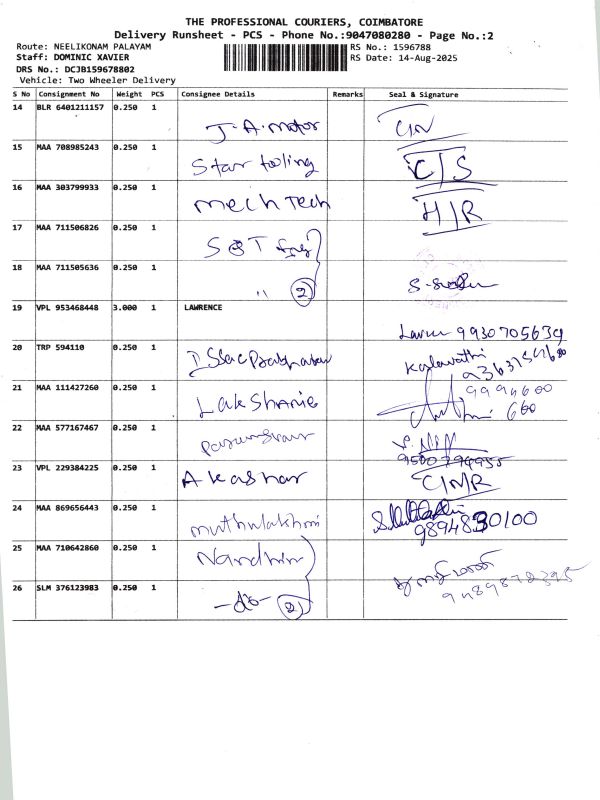 THE PROFESSIONAL COURIERS, COIMBATORE
Delivery Runsheet - PCS - Phone No.:9047080280 - Page No.:2
Route: NEELIKONAM PALAYAM RS No.: 1596788
Staff: DOMINIC XAVIER RS Date: 14-Aug-2025
DRS No.: DCJB159678802
Vehicle: Two Wheeler Delivery
S No Consignment No Weight PCS Consignee Details Remarks Seal & Signature
14 BLR 6401211157 0.250 1
J. A. motor
15 MAA 708985243 0.250 1
Star tooling C/S
16 MAA 303799933 0.250 1
mech Tech H/R
17 MAA 711506826 0.250 1
18 MAA 711505636 0.250 1
" 2
19 VPL 953468448 3.000 1 LAWRENCE
9930705639
20 TRP 594110 0.250 1
Kalavathi
21 MAA 111427260 0.250 1
Lakshanie
22 MAA 577167467 0.250 1
23 VPL 229384225 0.250 1
Akashar C/N/R
24 MAA 869656443 0.250 1
muthulakhmi
25 MAA 710642860 0.250 1
Nandhini
26 SLM 376123983 0.250 1
-do- 2